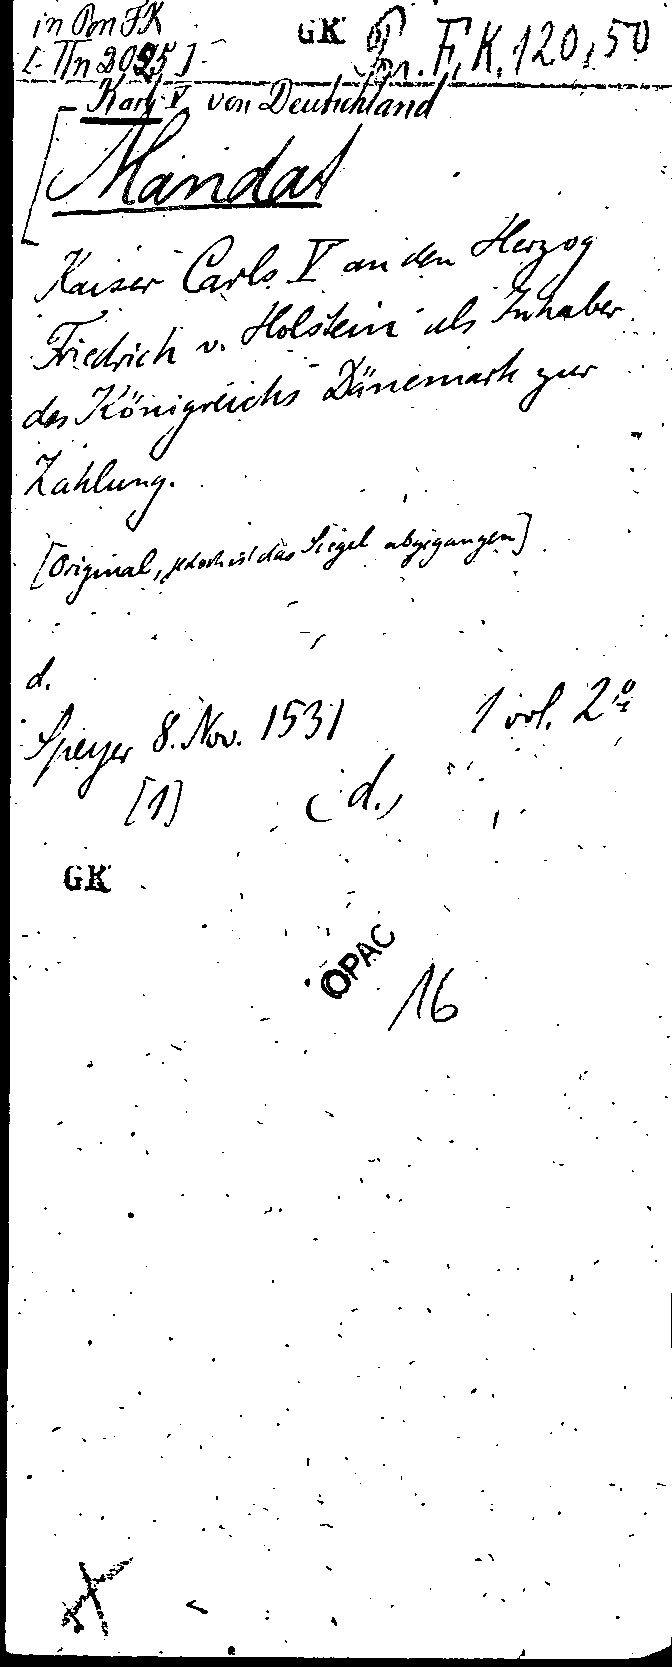 in Bn FK
GK
F.K. 120,50
[ IIn 2025 ]
Karl V von Deutschland
[Mandat
Kaiser Carls V an den Herzog
Friedrich v. Holstein als Inhaber
des Königreichs Dänemark zur
Zahlung.
[Original, jedoch ist das Siegel abgegangen]
d.
Speyer 8. Nov. 1531 1 vol. 2º
[1] (d.)
GK
OPAC
16